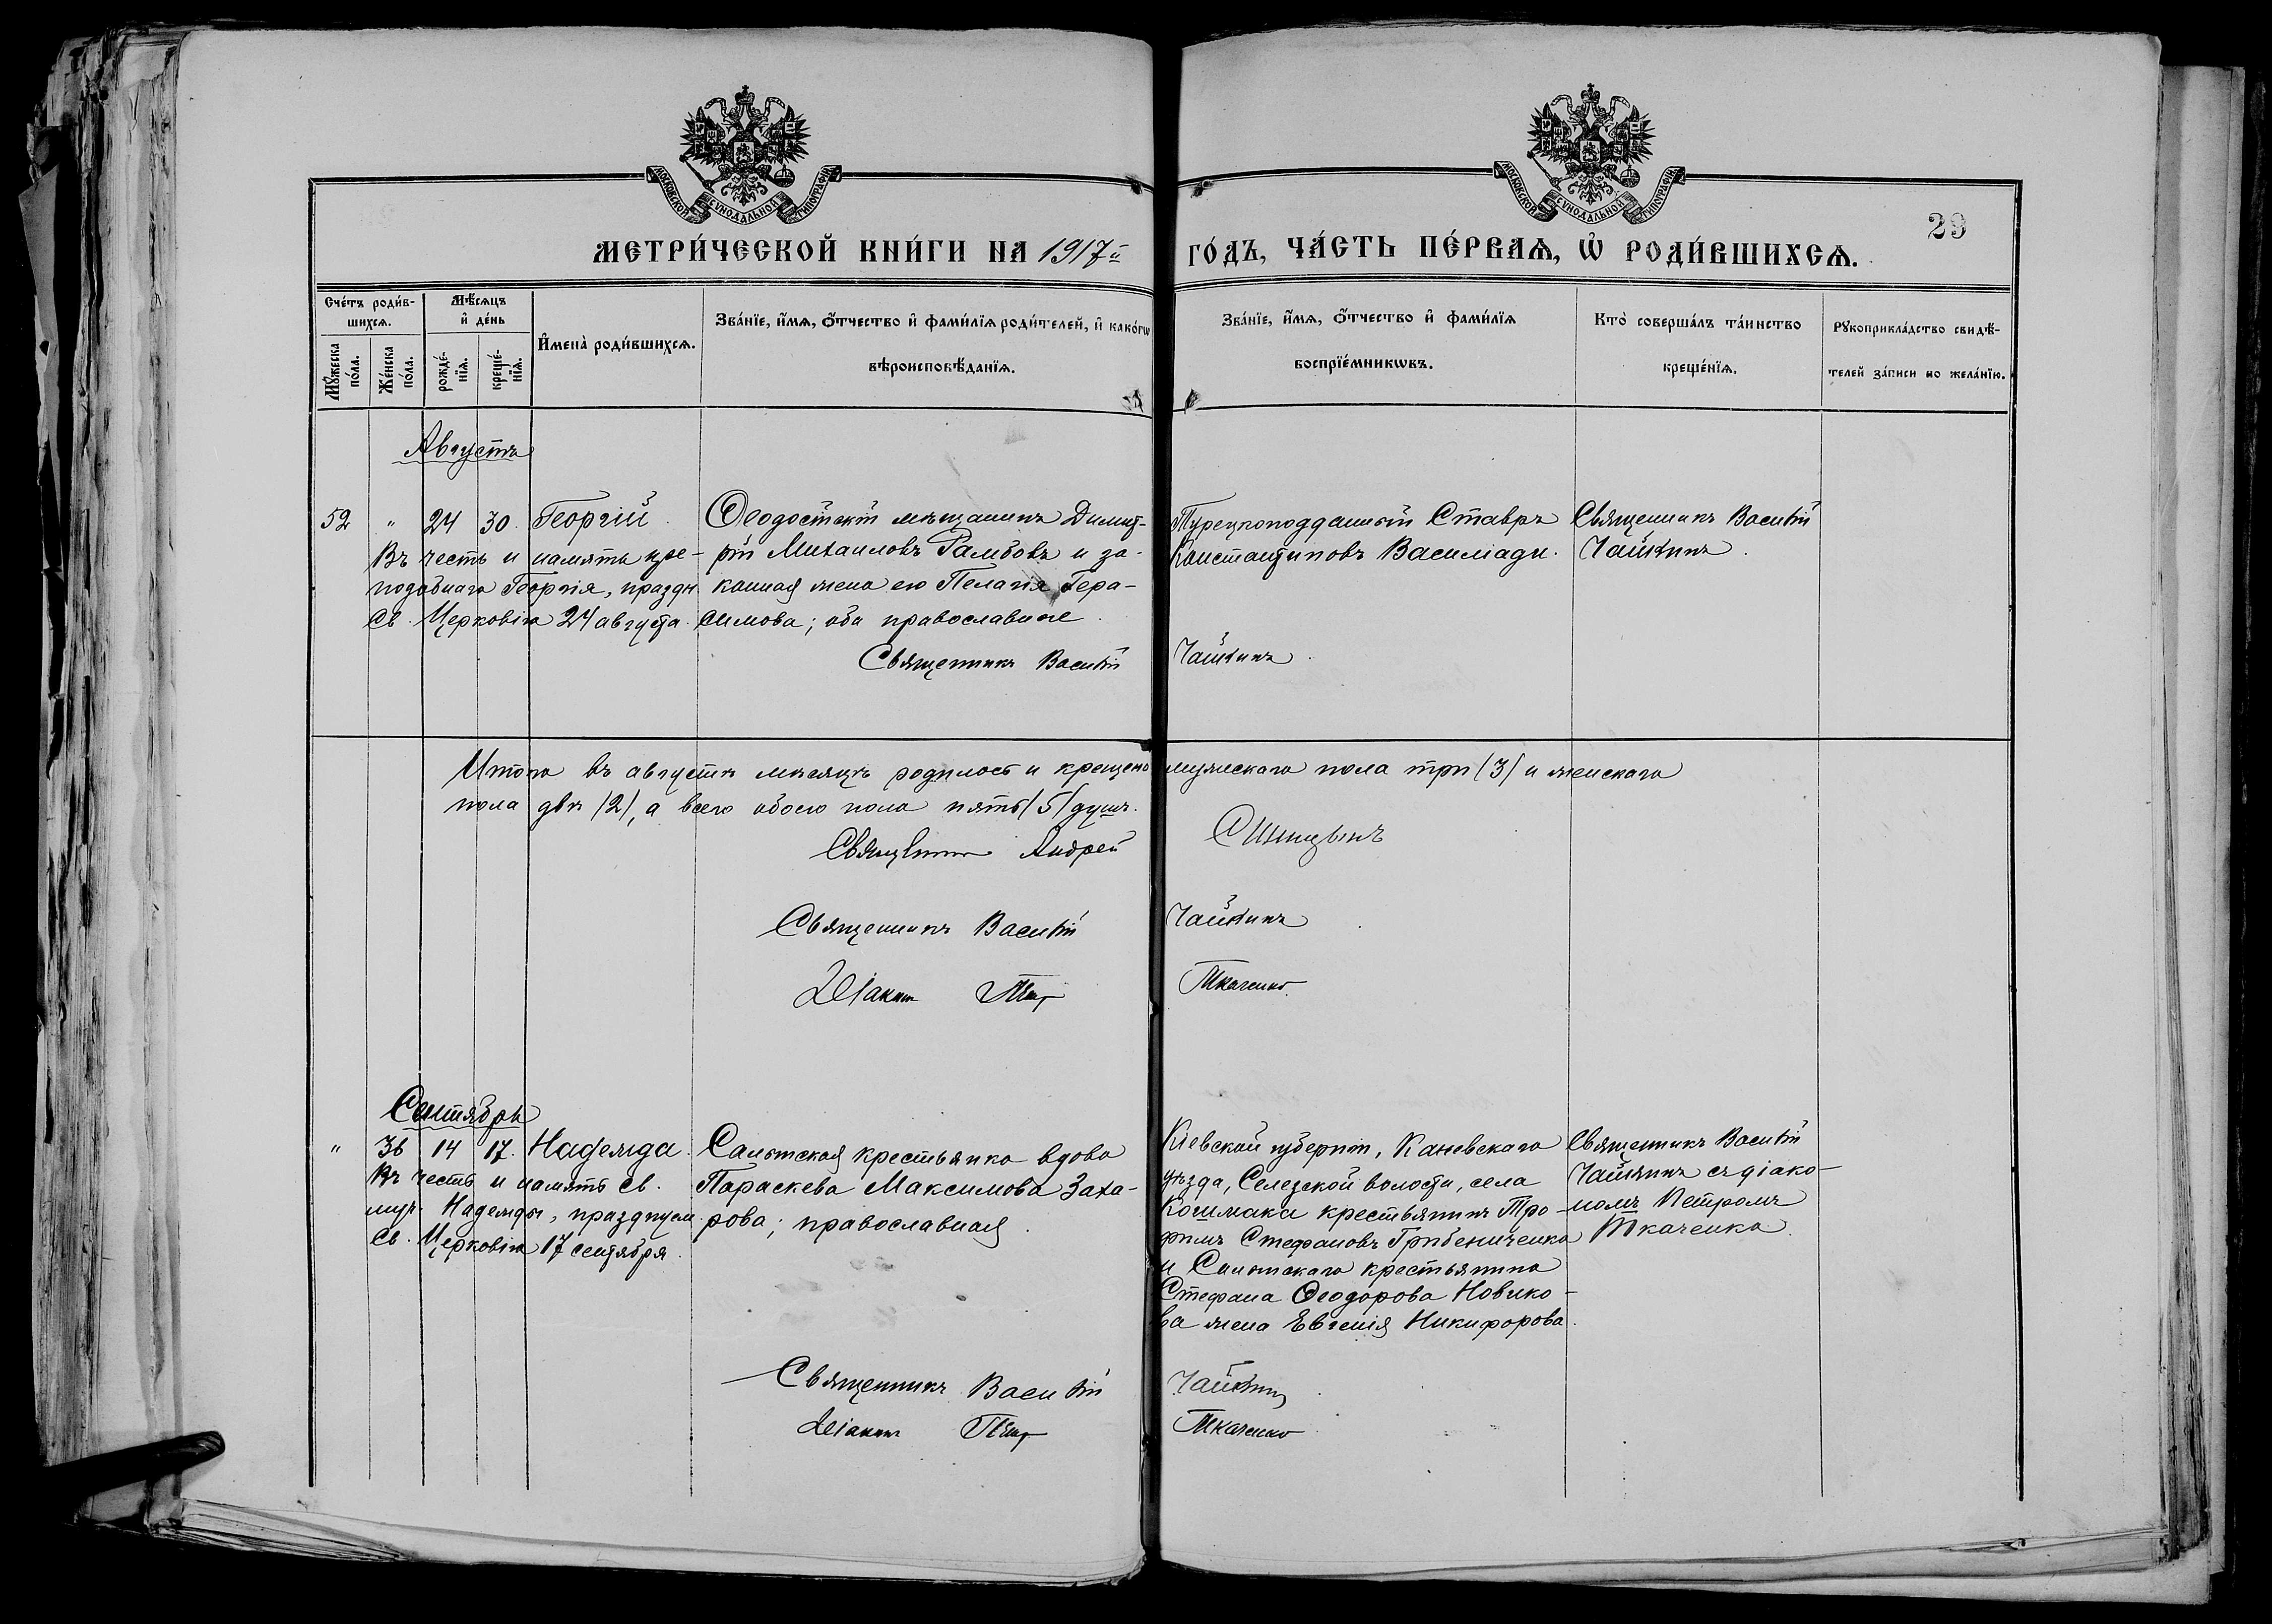 МОСКОВСКОЙ СѴНОДАЛЬНОЙ ТИПОГРАФІИ
МОСКОВСКОЙ СѴНОДАЛЬНОЙ ТИПОГРАФІИ
29
МЕТРИ́ЧЕСКОЙ КНИ́ГИ НА 1917й го́дъ, ча́сть пе́рваѧ, ѡ҆ роди́вшихсѧ.
Сче́тъ роди́вшихсѧ.
Мѹ́жеска по́ла.
Же́нска по́ла.
Мѣ́сѧцъ и҆ де́нь
рожде́нїѧ.
креще́нїѧ.
И҆мена̀ роди́вшихсѧ.
Зва́нїе, и҆́мѧ, ѻ҆́тчество и҆ фами́лїѧ роди́телей, и҆ како́гѡ
вѣроисповѣ́данїѧ.
Зва́нїе, и҆́мѧ, ѻ҆́тчество и҆ фами́лїѧ
воспрїе́мникѡвъ.
Кто̀ соверша́лъ та́инство
креще́нїѧ.
Рѹкоприкла́дство свидѣ́-
телей за́писи по жела́нїю.
Августъ
52 " 24 30. Георгій.
Въ честь и память пре-
подобнаго Георгія, праздн.
Св. Церковію 24 августа.
Ѳеодосійскій мѣщанинъ Димит-
рій Михаиловъ Рамбовъ и за-
конная жена его Пелагія Гера-
симова; оба православные.
Турецкоподданный Ставръ
Константиновъ Василіади.
Священникъ Василій
Чайкинъ.
Священникъ Василій Чайкинъ.
Итого въ августѣ мѣсяцѣ родилось и крещено мужескаго пола три /3/ и женскаго
пола двѣ /2/, а всего обоего пола пять /5/ душъ.
Священникъ Андрей Синицынъ
Священникъ Василій Чайкинъ.
Діаконъ Петр Ткаченко.
Сентябрь
" 36 14 17. Надежда.
Въ честь и память св.
муч. Надежды, празднуем.
Св. Церковію 17 сентября.
Салынская крестьянка вдова
Параскева Максимова Заха-
рова; православная.
Кіевской губерніи, Каневскаго
уѣзда, Селезской волости, села
Кошмака крестьянинъ Тро-
фимъ Стефановъ Грибениченко
и Салынскаго крестьянина
Стефана Ѳеодорова Новико-
ва жена Евгенія Никифорова.
Священникъ Василій
Чайкинъ съ діако-
номъ Петромъ
Ткаченко.
Священникъ Василій Чайкинъ.
Діаконъ Петр Ткаченко